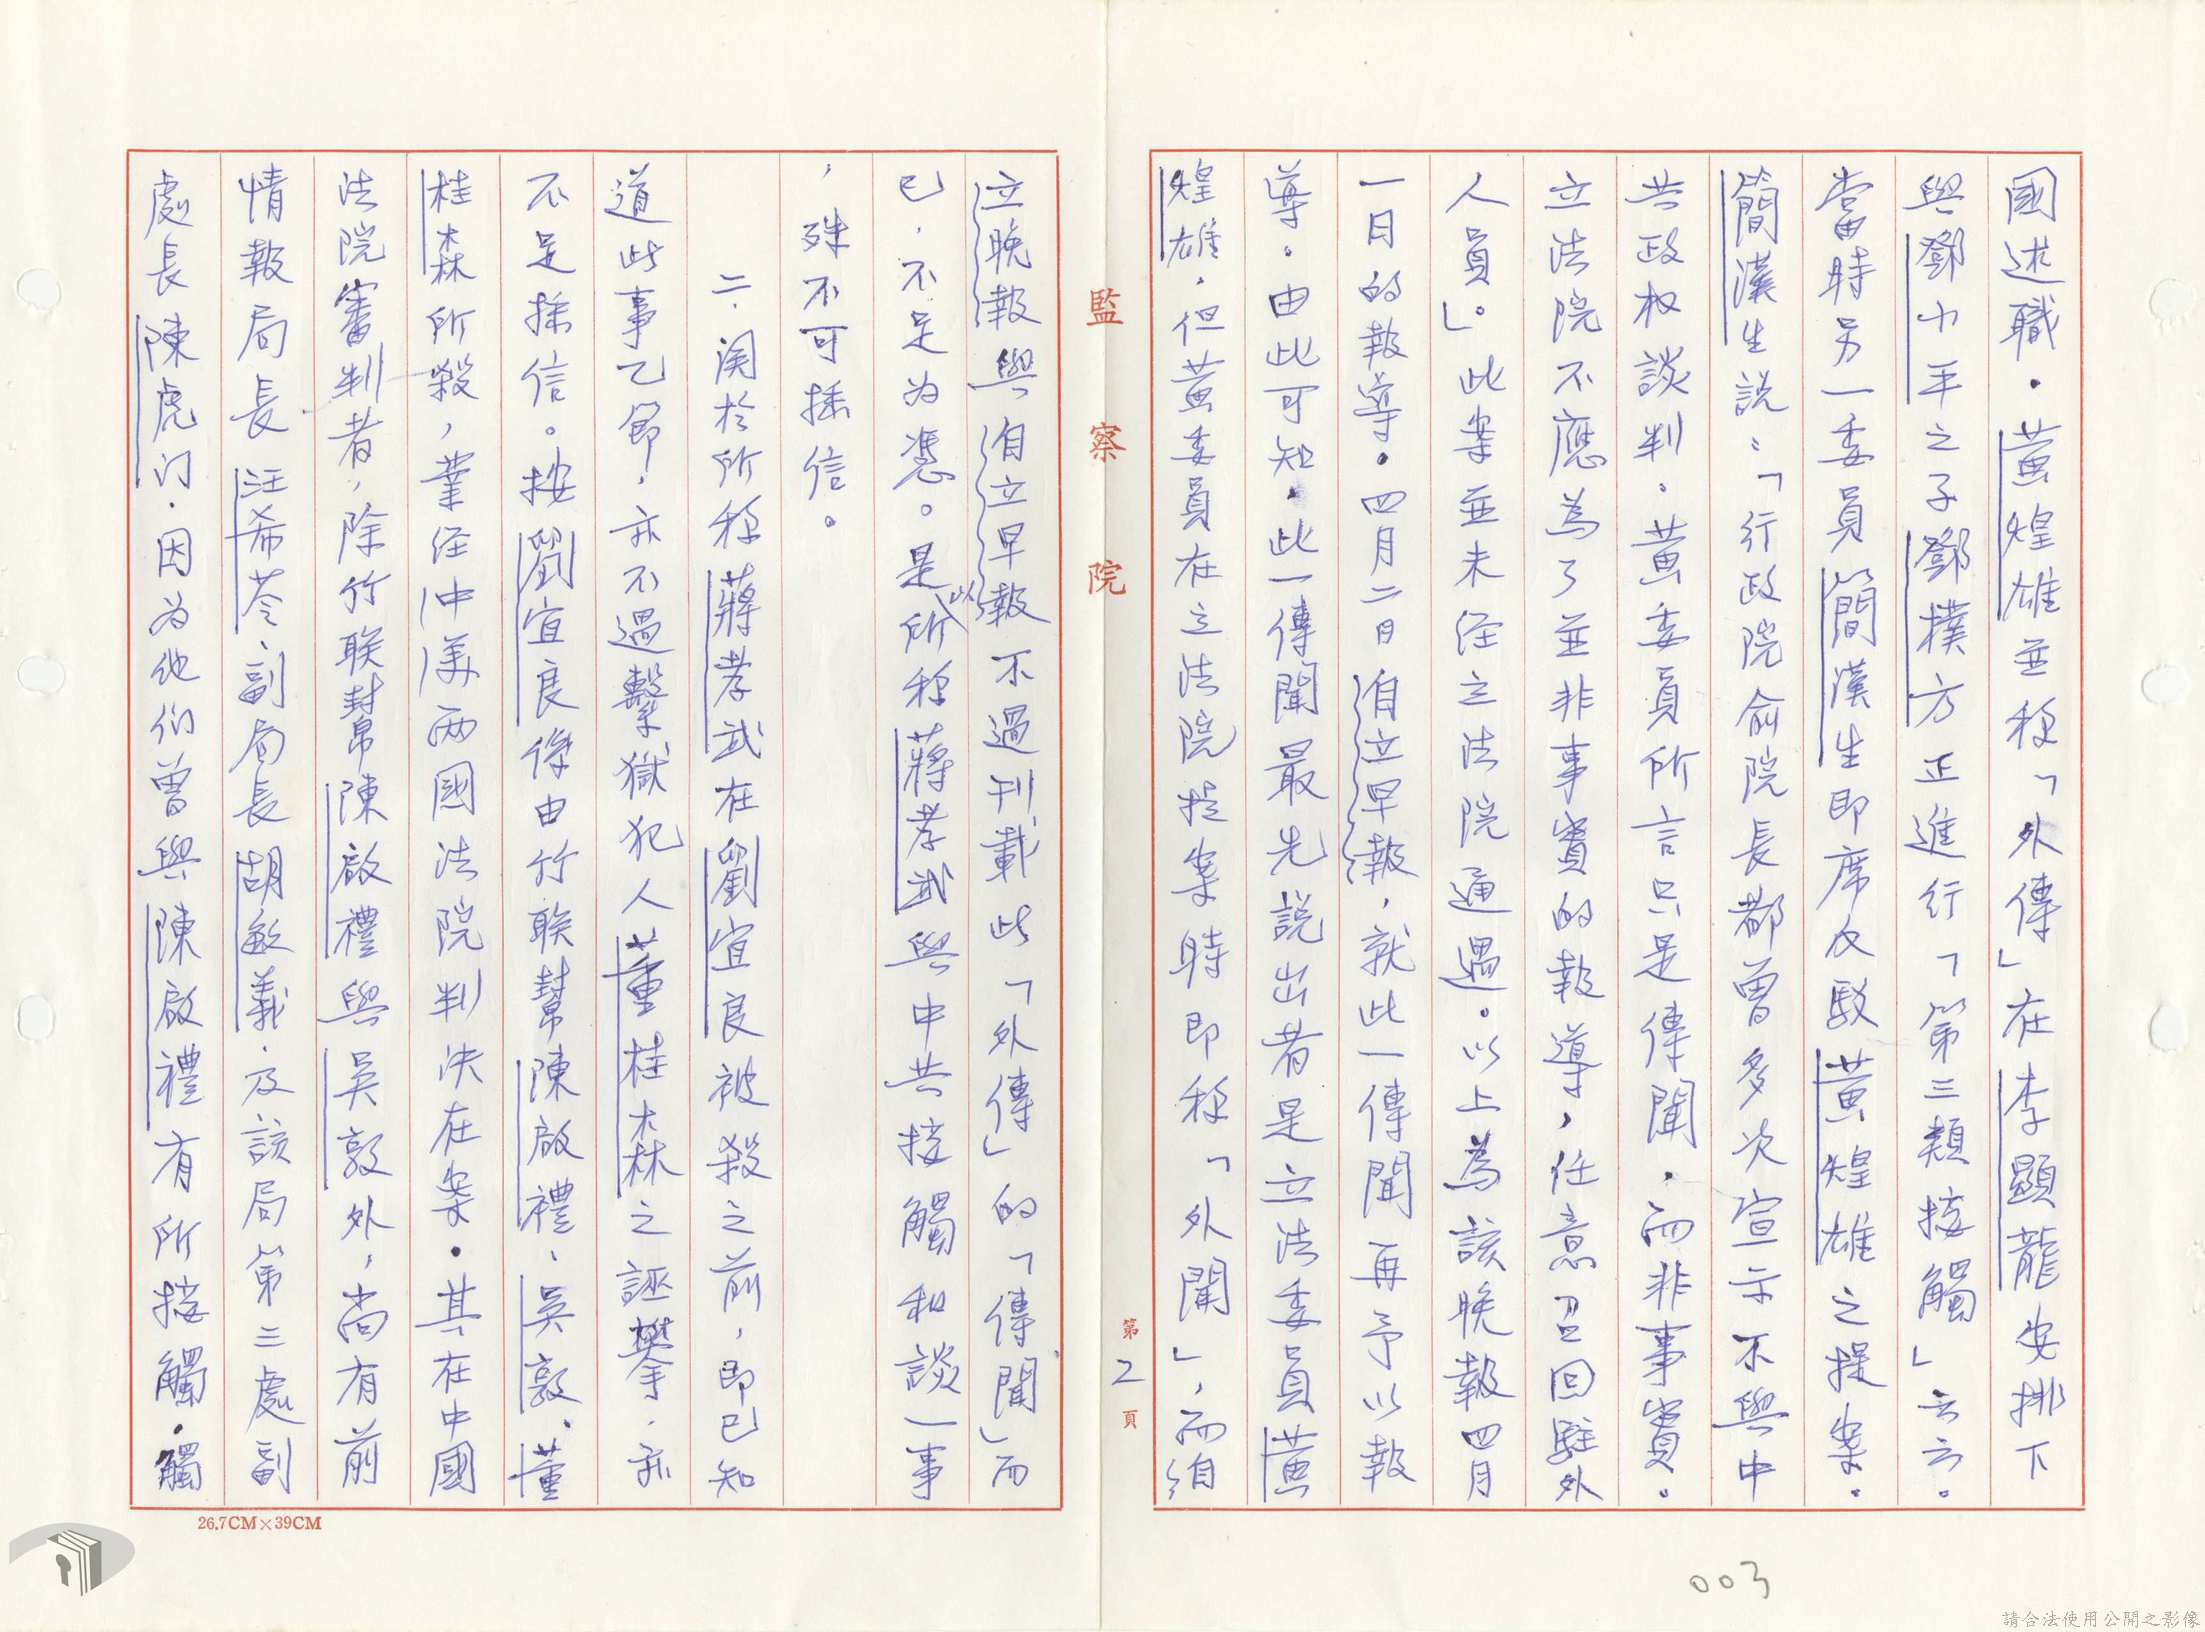 國述職。黃煌雄並称「外傳」在李顯龍安排下
與鄧小平之子鄧樸方正進行「第三類接觸」云云。
當時另一委員簡漢生即席反駁黃煌雄之提案。
簡漢生說：「行政院俞院長都曾多次宣示不與中
共政权談判。黃委員所言只是傳聞，而非事實。
立法院不應為了並非事實的報導，任意召回駐外
人員」。此案並未经立法院通過。以上為該晚報四月
一日的報導。四月二日自立早報，就此一傳聞再予以報
導。由此可知，此一傳聞最先說出者是立法委員黃
煌雄，但黃委員在立法院提案時即称「外聞」，而自
監察院
第2頁
立晚報與自立早報不過刊載此「外傳」的「傳聞」而
已，不足为憑。是以所称蔣孝武與中共接觸和談一事
，殊不可採信。
二、関於所称蔣孝武在劉宜良被殺之前，即已知
道此事乙節，亦不過繫獄犯人董桂森之誣攀，亦
不足採信。按劉宜良係由竹联幫陳啟禮、吳敦、董
桂森所殺，業经中美兩國法院判決在案。其在中國
法院審判者，除竹联幫陳啟禮與吳敦外，尚有前
情報局長汪希苓、副局長胡敏義、及該局第三處副
處長陳虎门，因为他们曾與陳啟禮有所接觸，觸
26.7CM×39CM
003
請合法使用公開之影像